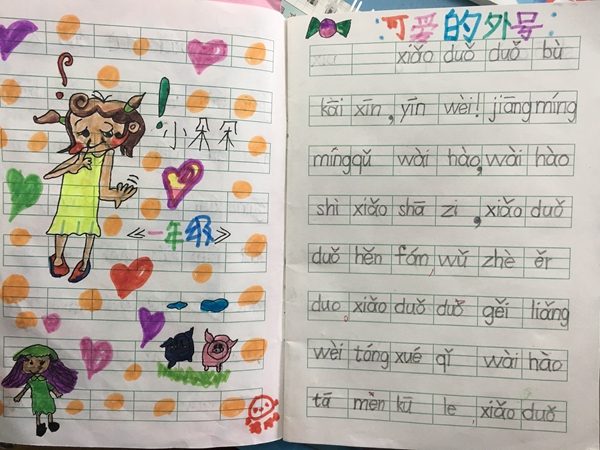 ?
!
小朵朵
《一年级》
可爱的外号
xiǎo duǒ duǒ bù
kāi xīn, yīn wèi! jiāng míng
míng qǔ wài hào, wài hào
shì xiǎo shā zi, xiǎo duǒ
duǒ hěn fán, wǔ zhè ěr
duo。xiǎo duǒ duǒ gěi liǎng
wèi tóng xué qǐ wài hào
tā mèn kū le, xiǎo duǒ